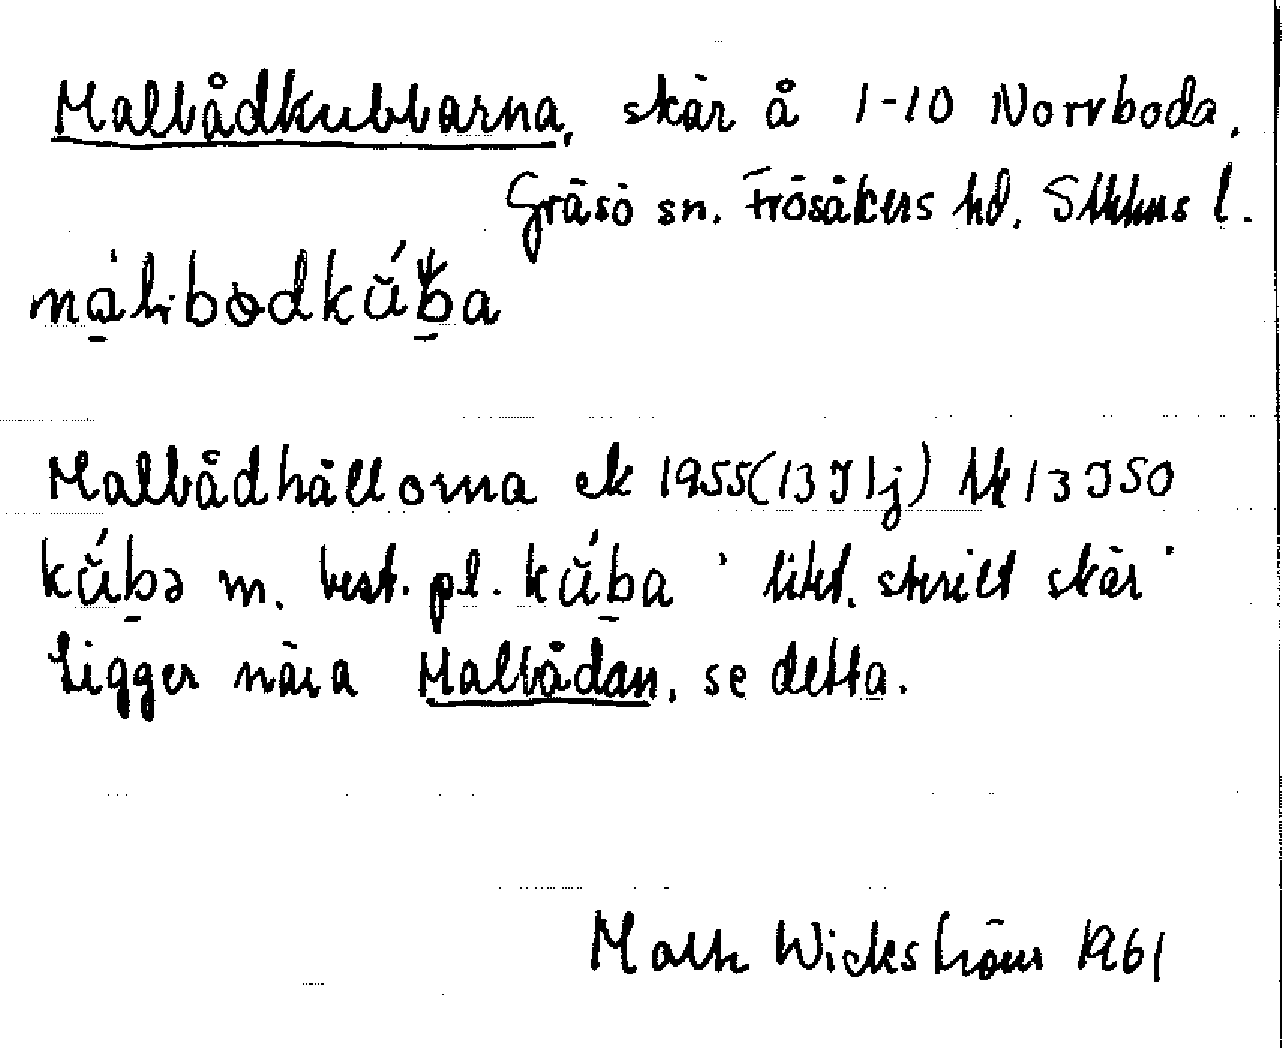 Malbådkubbarna, skär å 1-10 Norrboda,
Gräsö sn. Frösåkers hd. Sthlms l.
Malbådhällorna ek 1955 (13 I 1j) 13 I SO
kŭ́bə m. best. pl. kŭ́ba ' litet, sterilt skär '
Ligger nära Malbådan, se detta.
Wickström 1961